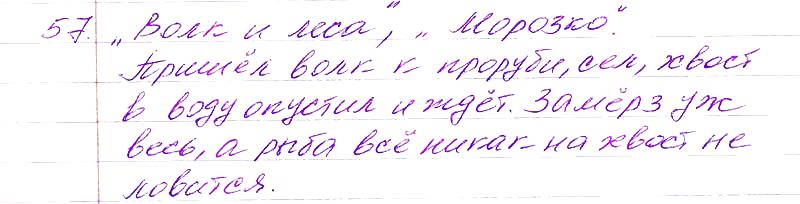 57. „Волк и леса", „Морозко".
Пришёл волк к проруби, сел, хвост
в воду опустил и ждёт. Замёрз уж
весь, а рыба всё никак на хвост не
ловится.